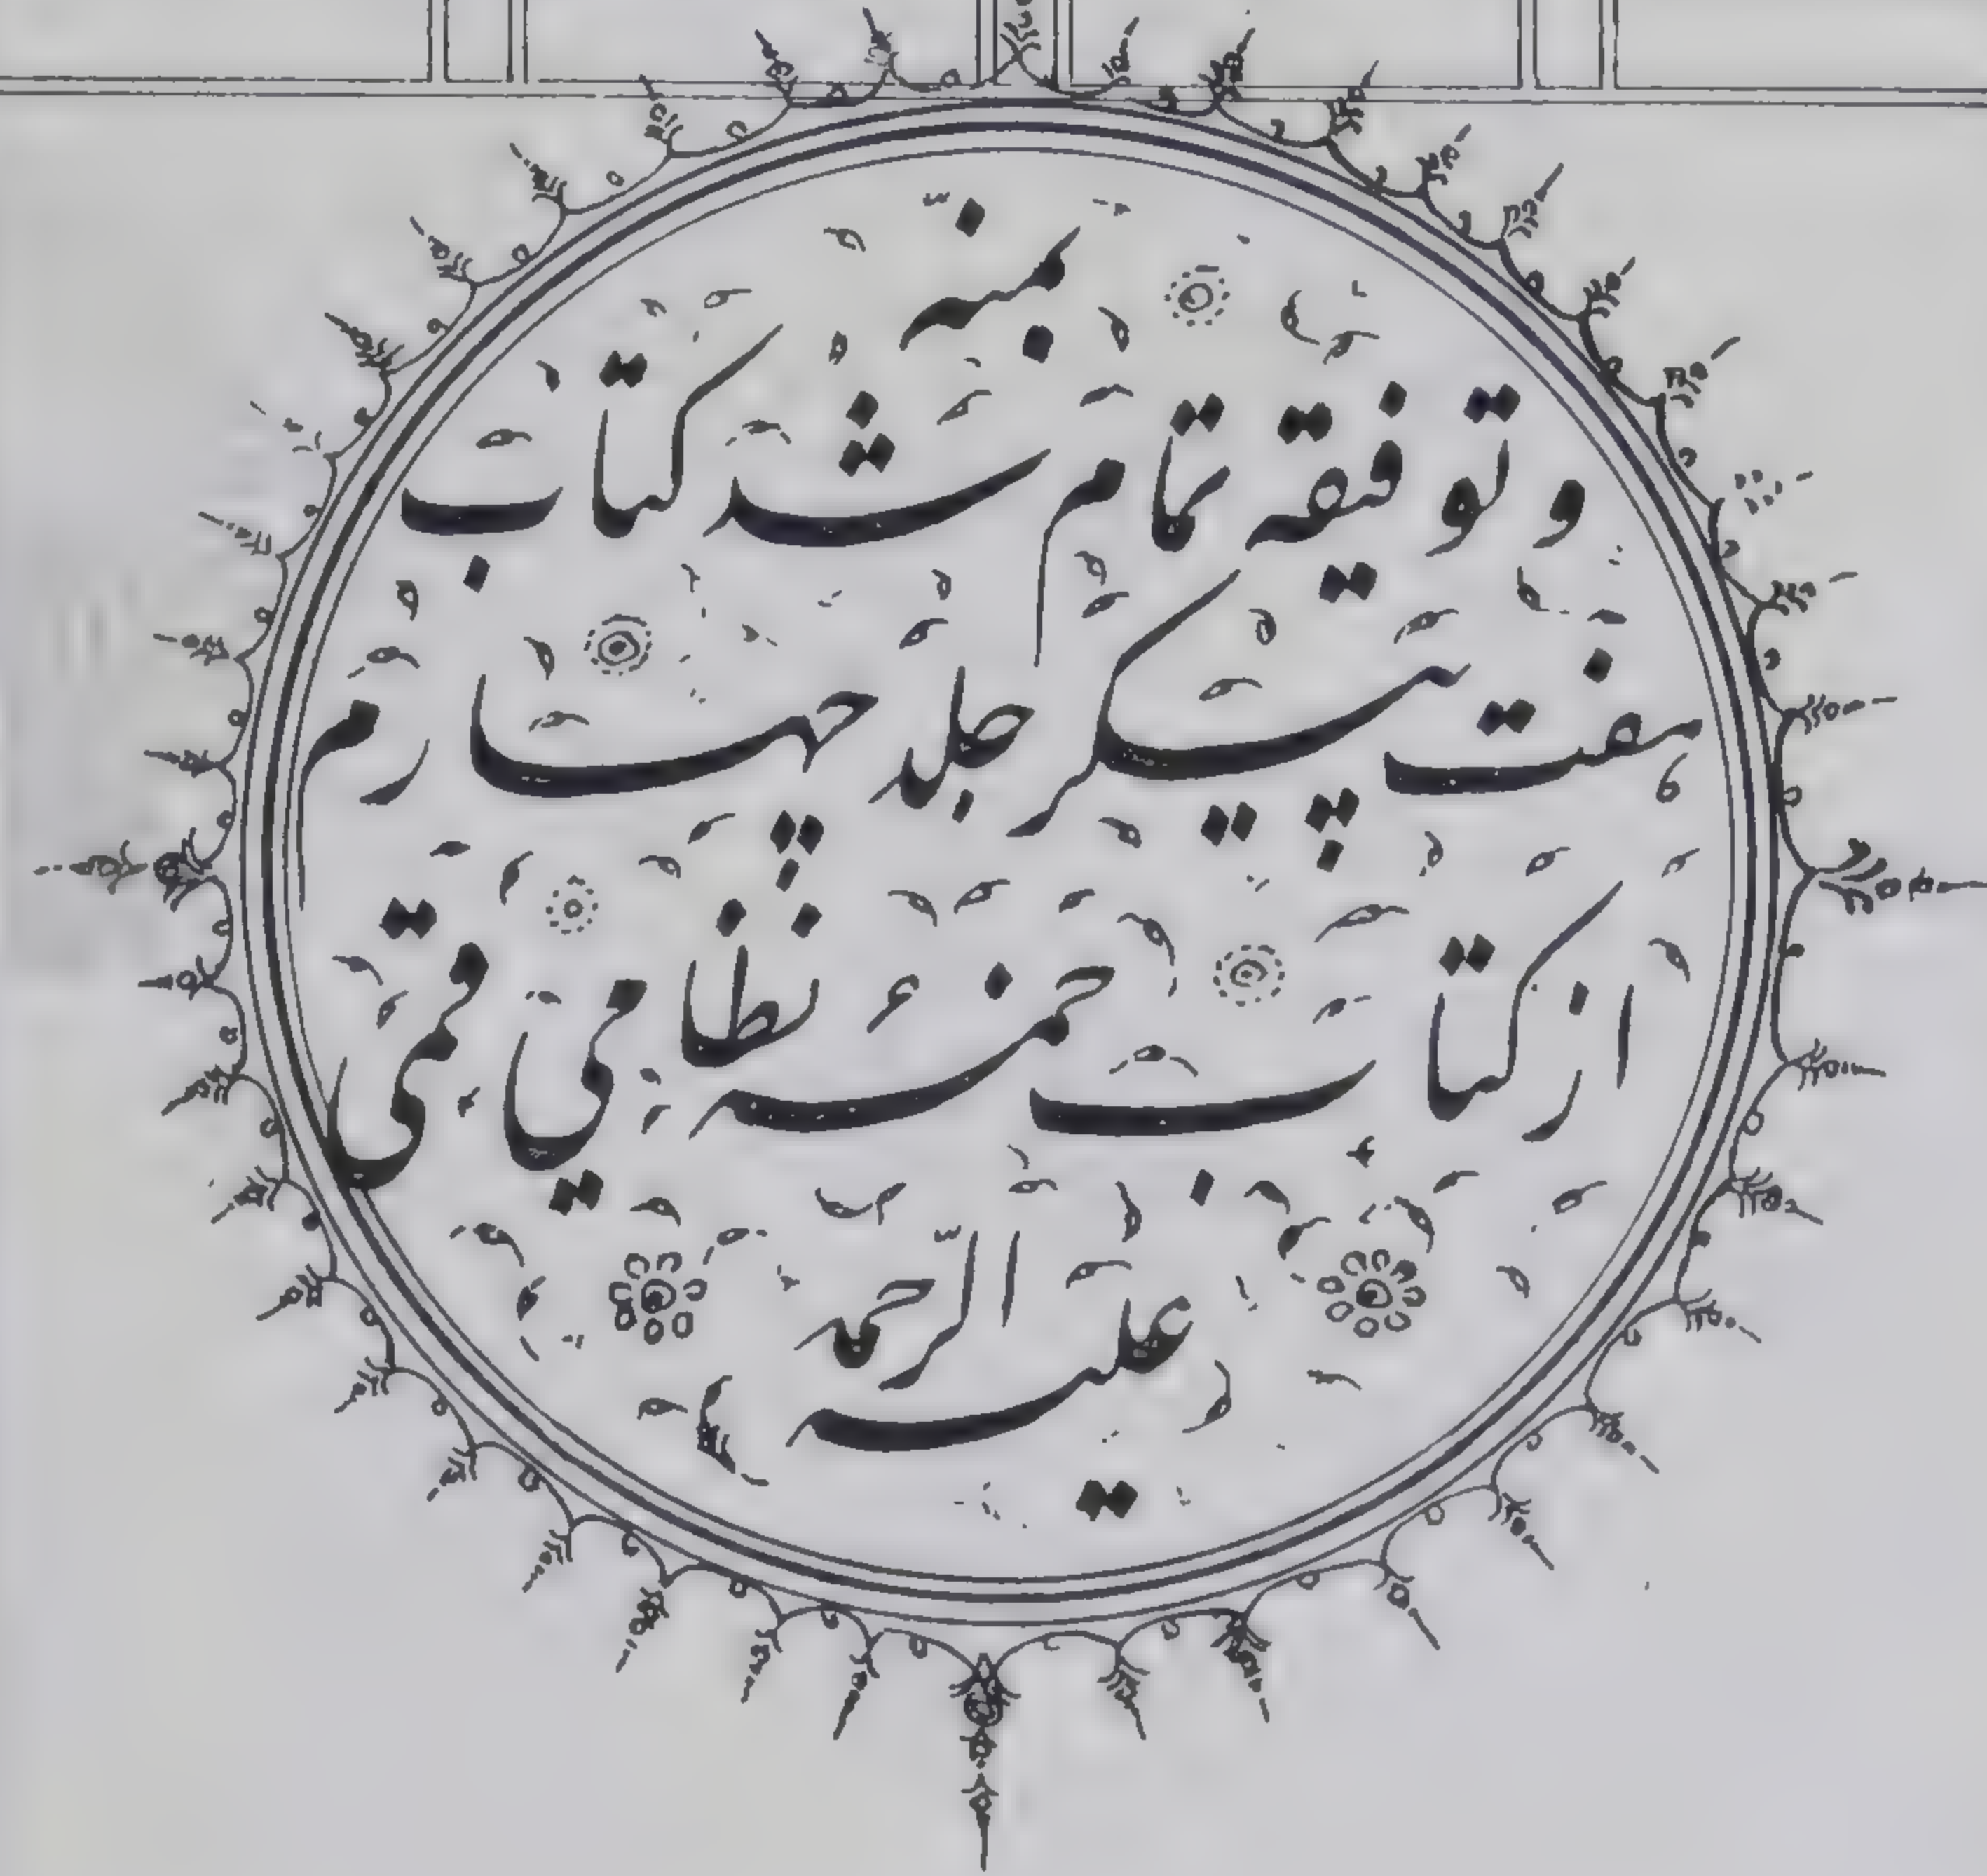 بمنه
و توفیقه تمام شد کتاب
هفت پیکر جلد چهارم
از کتاب خمسهٔ نظامی قمی
علیه الرحمه